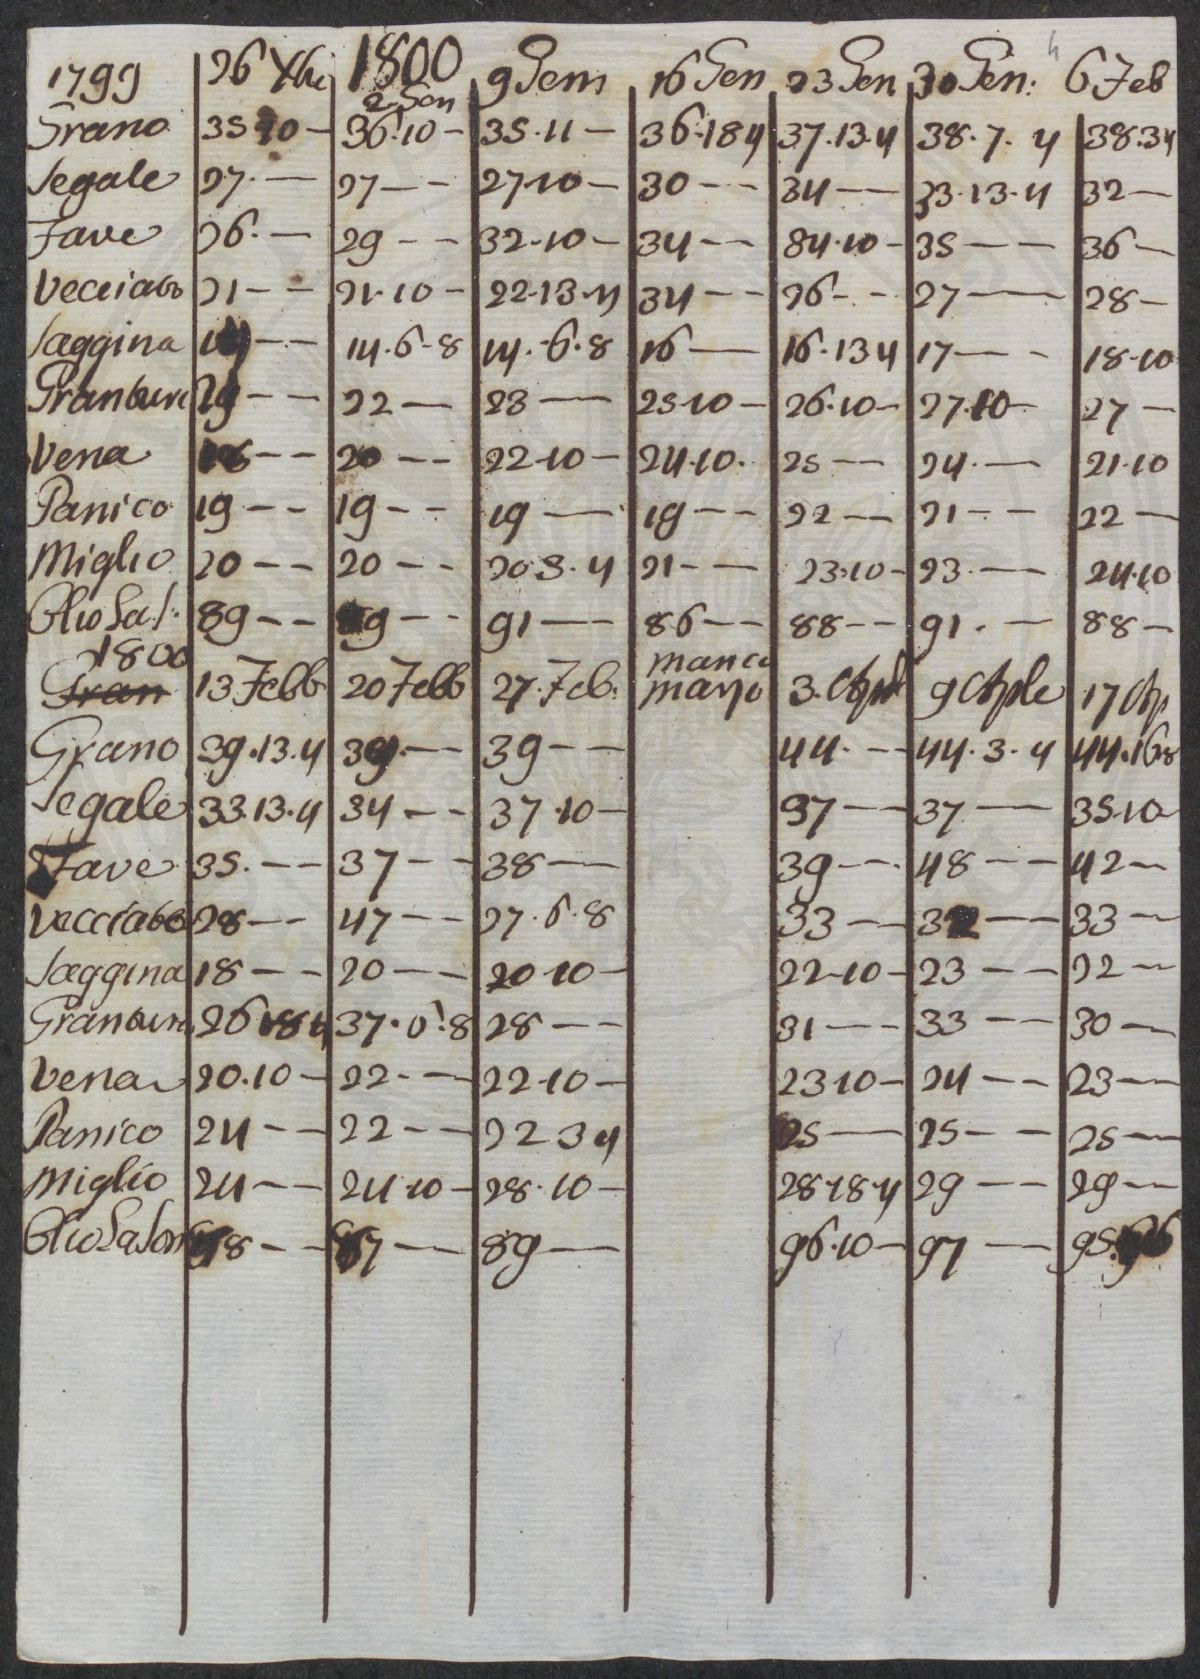 1799 26 Xbre 1800 2 Gen 9 Genn 16 Gen 23 Gen 30 Gen: 6 Feb
Grano 35 10 — 36.10 — 35.11 — 36.18 4 37.13.4 38.7.4 38.3 4
Segale 27. — 27 — — 27.10 — 30 — — 34 — 33.13.4 32 —
Fave 26. — 29 — — 32.10 — 34 — — 34.10 — 35 — — 36 —
Vecciato 21 — — 21.10 — 22.13.4 34 — — 26 — — 27 — 28 —
Saggina — — 14.6.8 14.6.8 16 — 16.13 4 17 — — 18.10
Granturc 29 — — 22 — 23 — 25.10 — 26.10 — 27.10 — 27 —
Vena — — 20 — — 22.10 — 24.10. 25 — 24. — 21.10
Panico 19 — — 19 — — 19 — 19 — — 22 — 21 — — 22 —
Miglio 20 — — 20 — — 20 3.4 21 — — 23.10 — 23. — 24.10
Olio Sas. 89 — — 89 — — 91 — 86 — — 88 — — 91. — 88 —
1800
Gran 13 Febb 20 Febb 27. Feb. manca marzo 3. Aple 9 Aple 17 Ap
Grano 39.13.4 39. — 39 — — 44. — 44.3.4 44.16.8
Segale 33.13.4 34 — — 37.10 — 37 — 37 — 35.10
Fave 35. — — 37 — — 38 — 39 — 48 — — 42 —
Vecciato 28 — — 47 — — 27.6.8 33 — 32 — 33 —
Saggina 18 — — 20 — — 20.10 — 22.10 — 23 — — 22 —
Granturc 26 18 4 37.6.8 28 — — 31 — 33 — — 30 —
Vena 20.10 — 22 — 22.10 — 23 10 — 24 — — 23 —
Panico 24 — — 22 — — 22 3 4 25 — 25 — — 25 —
Miglio 24 — — 24.10 — 28.10 — 28.18.4 29 — — 29 —
Olio Sason 98 — — 87 — 89 — 96.10 — 97 — 95.